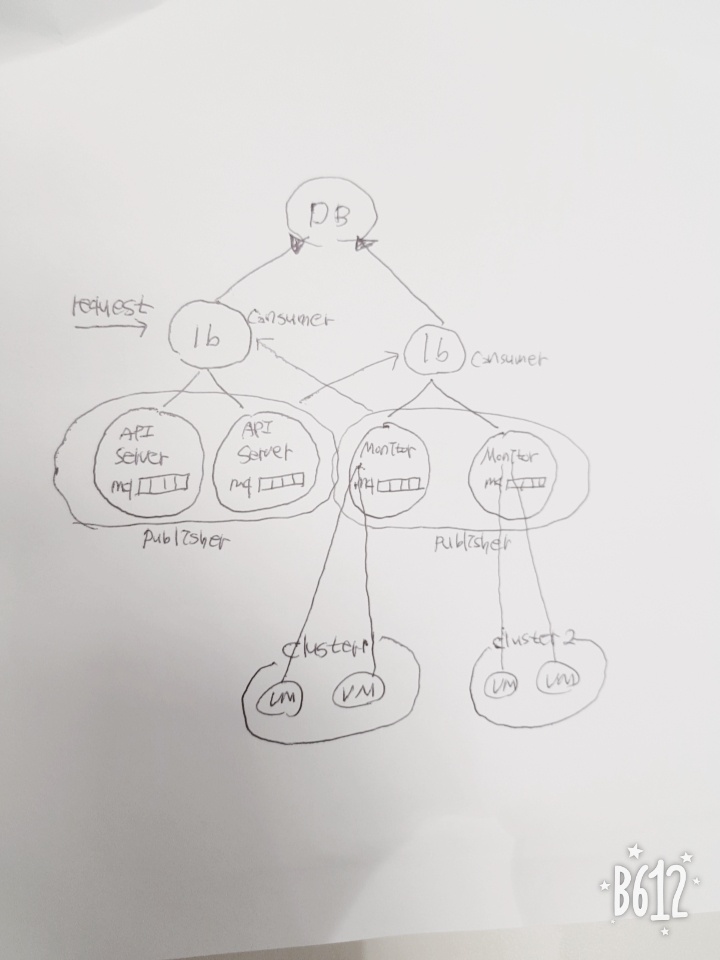 DB
request
lb
Consumer
lb
Consumer
API
Server
mq
API
Server
mq
Monitor
mq
Monitor
mq
Publisher
Publisher
Cluster1
Cluster 2
VM
VM
VM
VM
B612